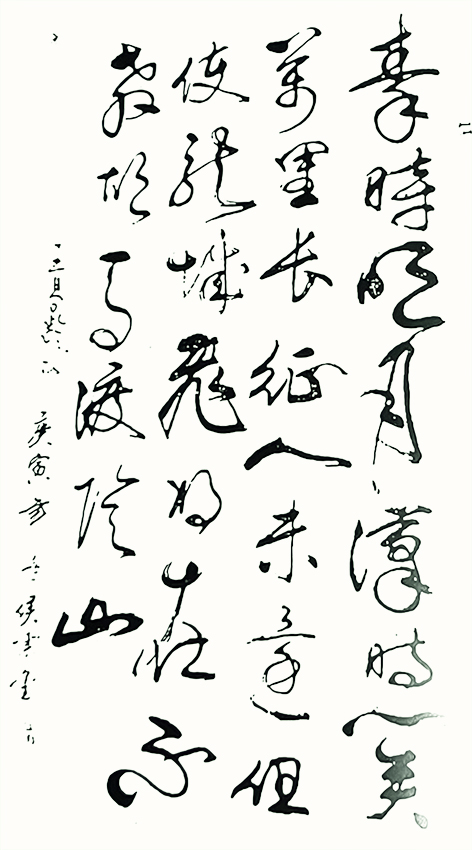 秦時明月漢時關
萬里长征人未還但
使龍城飛将在不
教胡馬渡陰山
王昌齡 庚寅